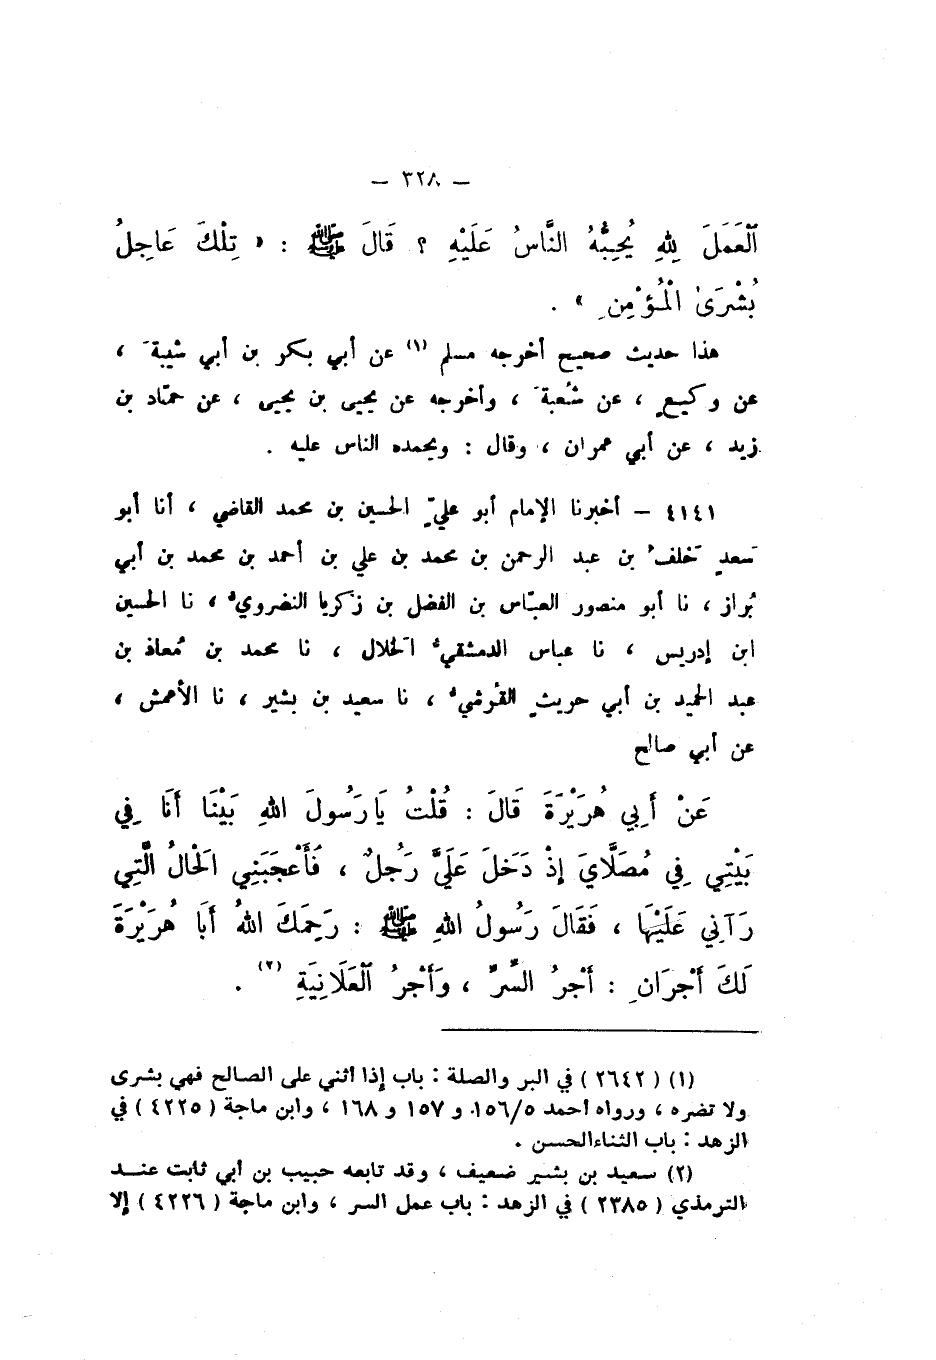 – ٣٢٨ –
ٱلْعَمَلَ لِلهِ يُحِبُّهُ النَّاسُ عَلَيْهِ ؟ قَالَ ﷺ : « تِلْكَ عَاجِلُ
بُشْرَىٰ الْمُؤْمِنِ » .
هذا حديث صحيح أخرجه مسلم (١) عن أبي بكر بن أبي شيبةَ ،
عن وكيعٍ ، عن شُعبةَ ، وأخرجه عن يحيى بن يحيى ، عن حمّاد بن
زيد ، عن أبي عمران ، وقال : ويحمده الناس عليه .
٤١٤١ – أخبرنا الإمام أبو عليّ الحسين بن محمد القاضي ، أنا أبو
سَعدٍ خَلفُ بن عبد الرحمن بن محمد بن علي بن أحمد بن محمد بن أبي
بُراز ، نا أبو منصور العبّاس بن الفضل بن زكريا النضرويُّ ، نا الحسين
ابن إدريس ، نا عباس الدمشقيُّ الخَلال ، نا محمد بن مُعاذ بن
عبد الحميد بن أبي حريثٍ القُرشيُّ ، نا سعيد بن بشير ، نا الأعمش ،
عن أبي صالح
عَنْ أَبِي هُرَيْرَةَ قَالَ : قُلْتُ يَارَسُولَ اللهِ بَيْنَا أَنَا فِي
بَيْتِي فِي مُصَلَّايَ إِذْ دَخَلَ عَلَيَّ رَجُلٌ ، فَأَعْجَبَنِي الْحَالُ الَّتِي
رَآنِي عَلَيْهَا ، فَقَالَ رَسُولُ اللهِ ﷺ : رَحِمَكَ اللهُ أَبَا هُرَيْرَةَ
لَكَ أَجْرَانِ : أَجْرُ السِّرِّ ، وَأَجْرُ ٱلْعَلَانِيَةِ (٢) .
(١) ( ٢٦٤٢ ) في البر والصلة : باب إذا أثني على الصالح فهي بشرى
ولا تضره ، ورواه أحمد ١٥٦/٥ و ١٥٧ و ١٦٨ ، وابن ماجة ( ٤٢٢٥ ) في
الزهد : باب الثناء الحسن .
(٢) سعيد بن بشير ضعيف ، وقد تابعه حبيب بن أبي ثابت عنــد
الترمذي ( ٢٣٨٥ ) في الزهد : باب عمل السر ، وابن ماجة ( ٤٢٢٦ ) إلا